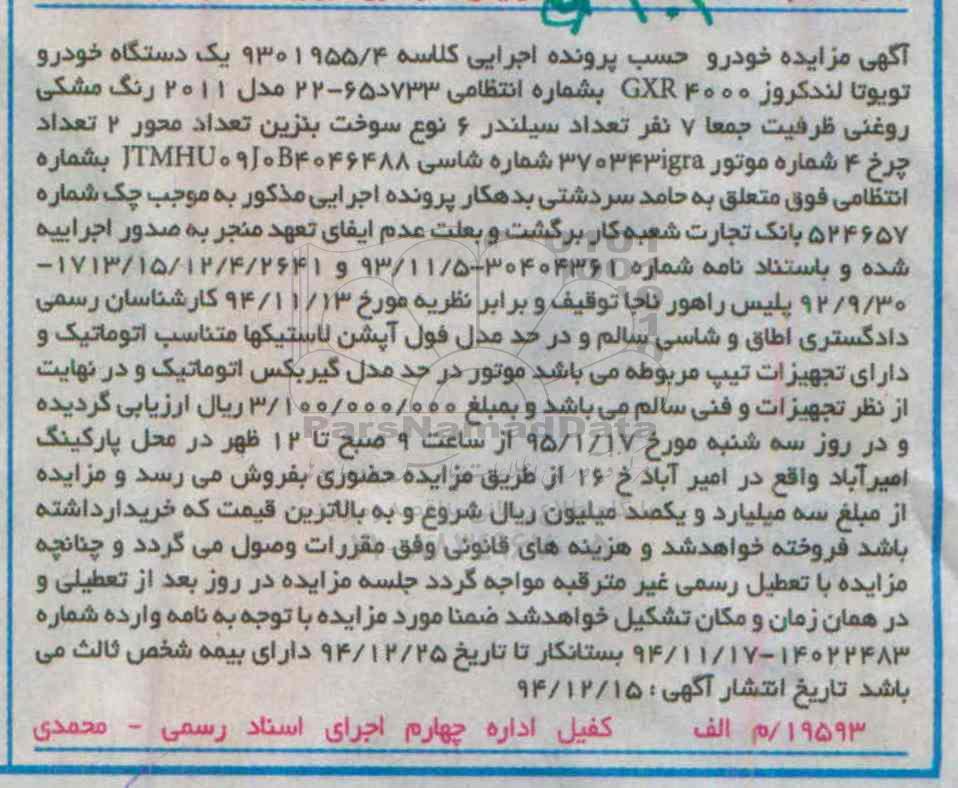 آگهی مزایده خودرو حسب پرونده اجرایی کلاسه ۹۳۰۱۹۵۵/۴ یک دستگاه خودرو
تویوتا لندکروز GXR ۴۰۰۰ بشماره انتظامی ۷۳۳د۶۵-۲۲ مدل ۲۰۱۱ رنگ مشکی
روغنی ظرفیت جمعا ۷ نفر تعداد سیلندر ۶ نوع سوخت بنزین تعداد محور ۲ تعداد
چرخ ۴ شماره موتور ۳۷۰۳۴۳igra شماره شاسی JTMHU۰۹J۰B۴۰۴۶۴۸۸ بشماره
انتظامی فوق متعلق به حامد سردشتی بدهکار پرونده اجرایی مذکور به موجب چک شماره
۵۲۴۶۵۷ بانک تجارت شعبه کار برگشت و بعلت عدم ایفای تعهد منجر به صدور اجراییه
شده و باستناد نامه شماره ۳۰۴۰۴۳۶۱-۹۳/۱۱/۵ و ۱۷۱۳/۱۵/۱۲/۴/۲۶۴۱-
۹۲/۹/۳۰ پلیس راهور ناجا توقیف و برابر نظریه مورخ ۹۴/۱۱/۱۳ کارشناسان رسمی
دادگستری اطاق و شاسی سالم و در حد مدل فول آپشن لاستیکها متناسب اتوماتیک و
دارای تجهیزات تیپ مربوطه می باشد موتور در حد مدل گیربکس اتوماتیک و در نهایت
از نظر تجهیزات و فنی سالم می باشد و بمبلغ ۳/۱۰۰/۰۰۰/۰۰۰ ریال ارزیابی گردیده
و در روز سه شنبه مورخ ۹۵/۱/۱۷ از ساعت ۹ صبح تا ۱۲ ظهر در محل پارکینگ
ParsNamadData
امیرآباد واقع در امیر آباد خ ۱۶ از طریق مزایده حضوری بفروش می رسد و مزایده
از مبلغ سه میلیارد و یکصد میلیون ریال شروع و به بالاترین قیمت که خریدارداشته
باشد فروخته خواهدشد و هزینه های قانونی وفق مقررات وصول می گردد و چنانچه
مزایده با تعطیل رسمی غیر مترقبه مواجه گردد جلسه مزایده در روز بعد از تعطیلی و
در همان زمان و مکان تشکیل خواهدشد ضمنا مورد مزایده با توجه به نامه وارده شماره
۱۴۰۲۲۴۸۳-۹۴/۱۱/۱۷ بستانکار تا تاریخ ۹۴/۱۲/۲۵ دارای بیمه شخص ثالث می
باشد تاریخ انتشار آگهی: ۹۴/۱۲/۱۵
۱۹۵۹۳/م الف کفیل اداره چهارم اجرای اسناد رسمی - محمدی